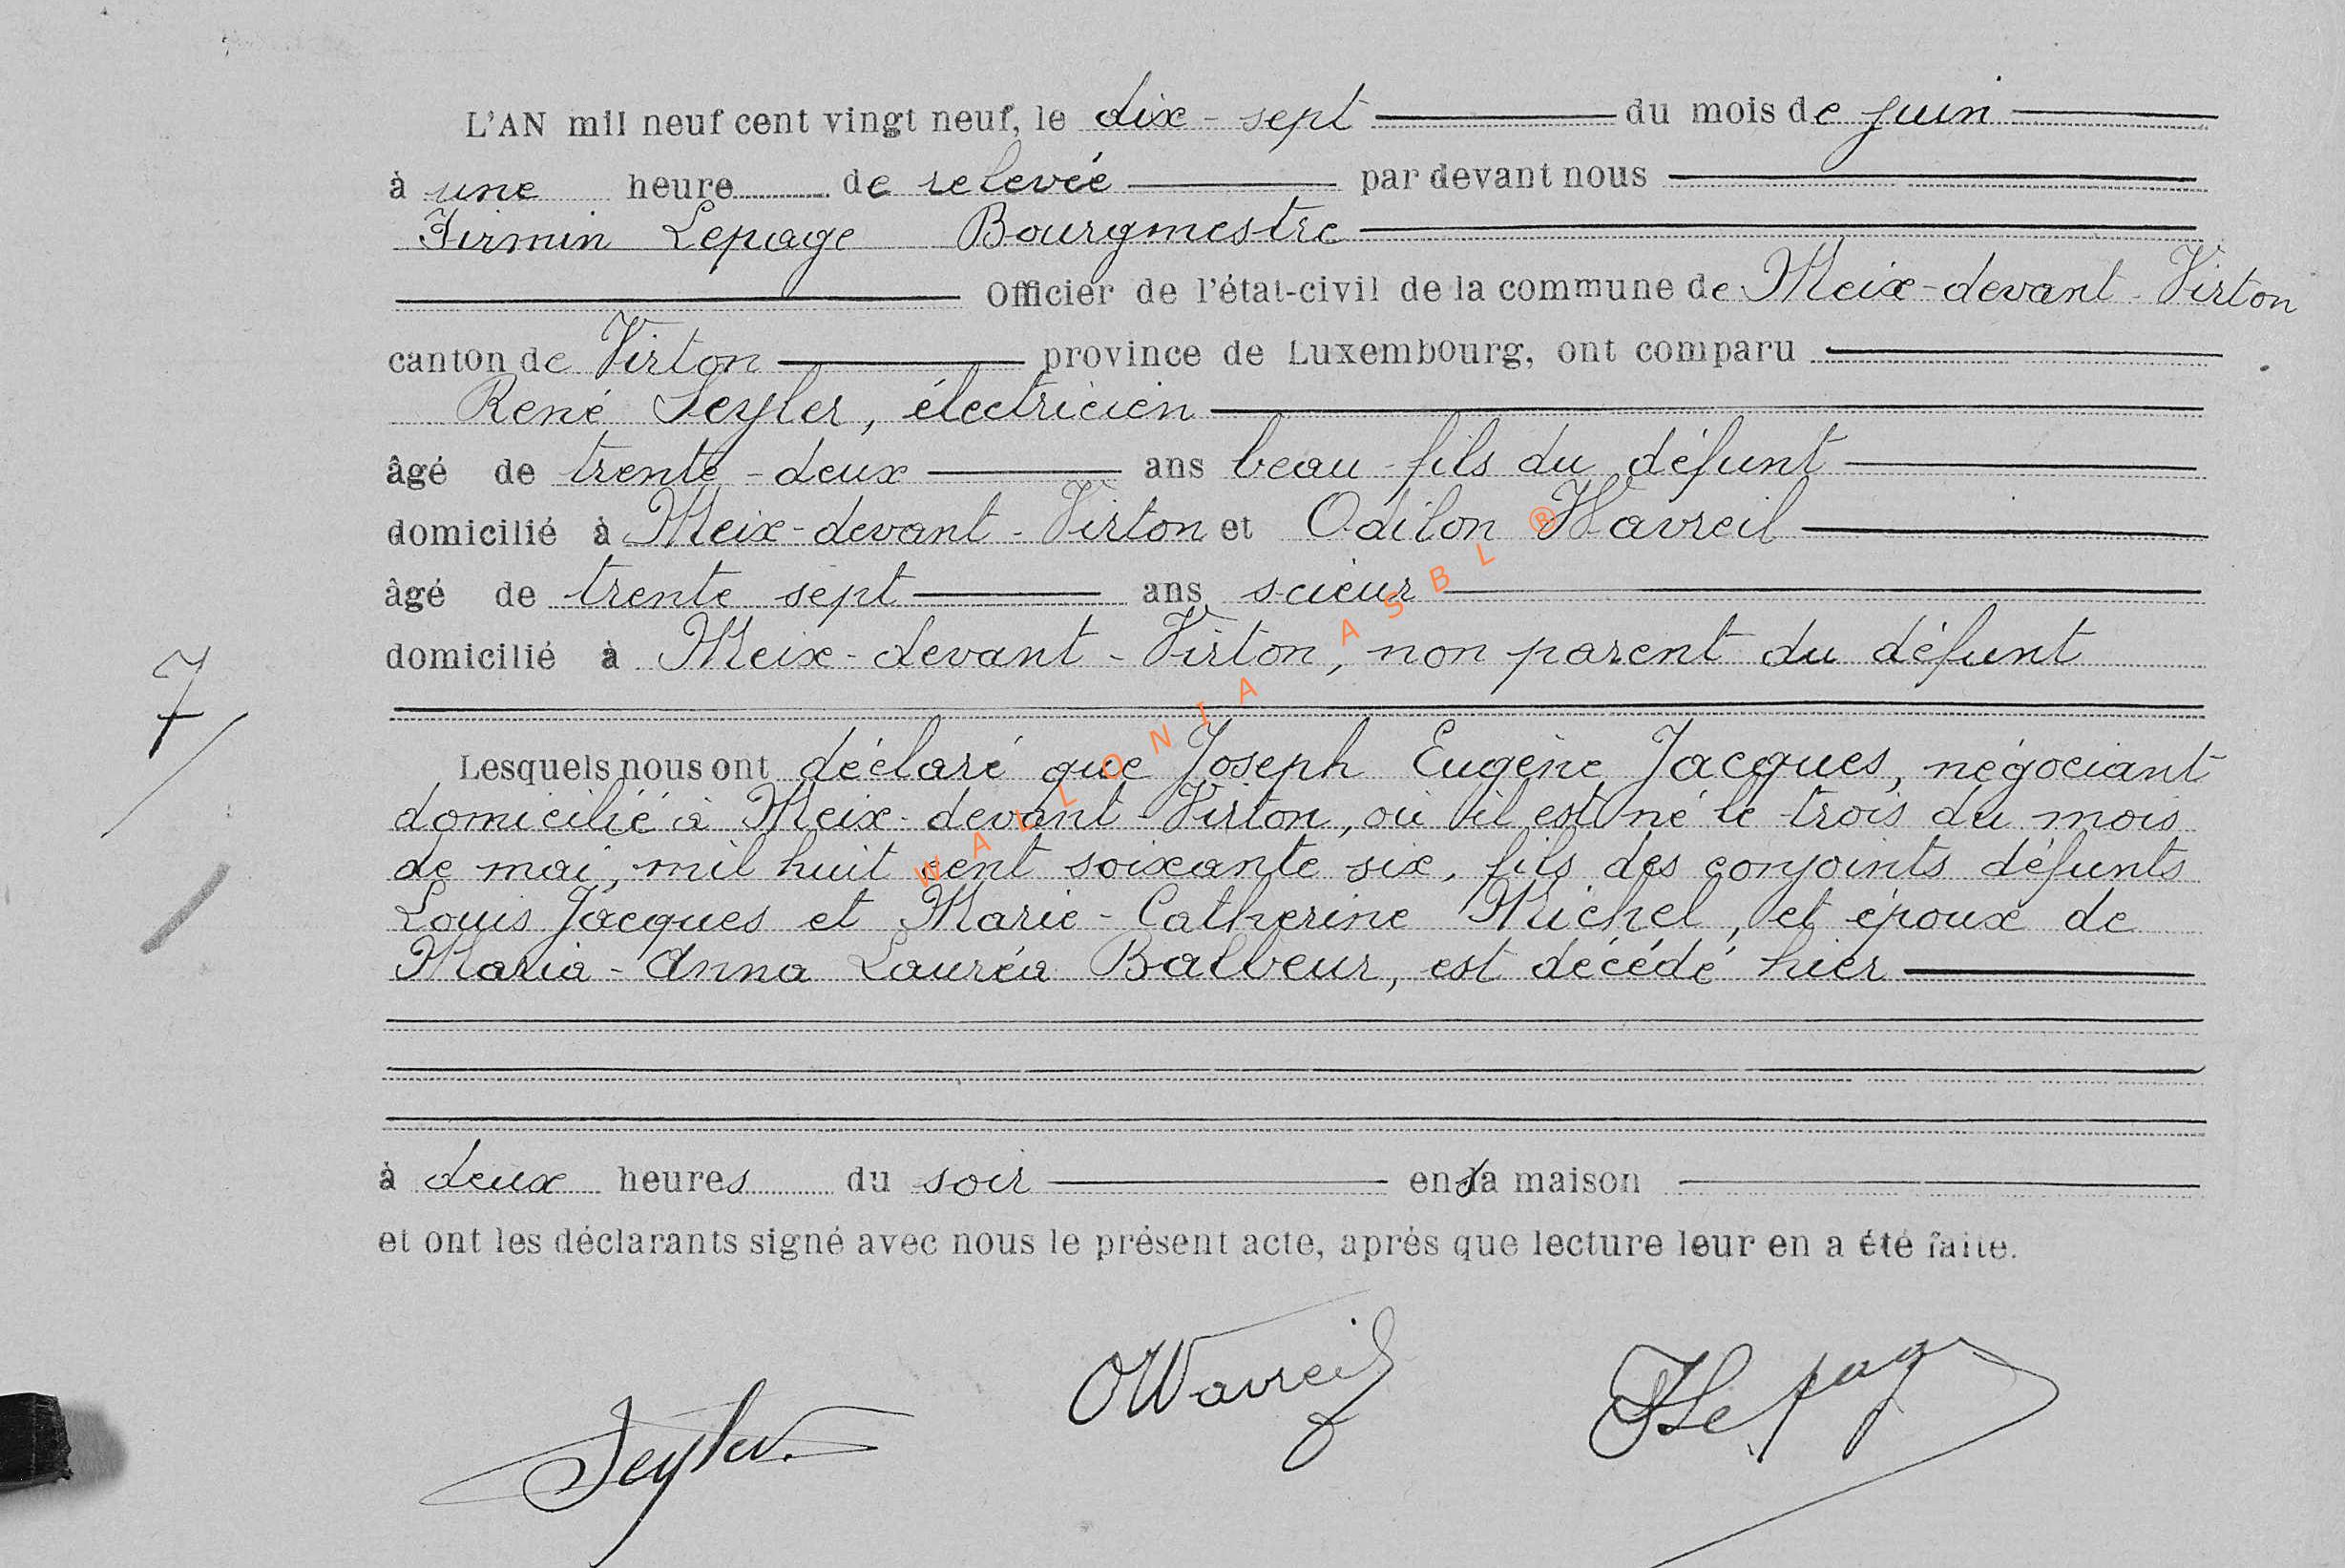 L'AN mil neuf cent vingt neuf, le dix-sept du mois de juin
à une heure de relevée par devant nous
Firmin Lepage Bourgmestre
Officier de l'état-civil de la commune de Meix-devant-Virton
canton de Virton province de Luxembourg, ont comparu
René Seyler, électricien
âgé de trente-deux ans beau-fils du défunt
domicilié à Meix-devant-Virton et Odilon Wavreil
âgé de trente sept ans scieur
domicilié à Meix-devant-Virton, non parent du défunt
7
Lesquels nous ont déclaré que Joseph Eugène Jacques, négociant
domicilié à Meix-devant-Virton, où il est né le trois du mois
de mai, mil huit cent soixante six, fils des conjoints défunts
Louis Jacques et Marie-Catherine Michel, et époux de
Maria-Anna Lauréa Balbeur, est décédé hier
à deux heures du soir en sa maison
et ont les déclarants signé avec nous le présent acte, après que lecture leur en a été faite.
Seyler. OWavreil FLepage
WALLONIA ASBL ®